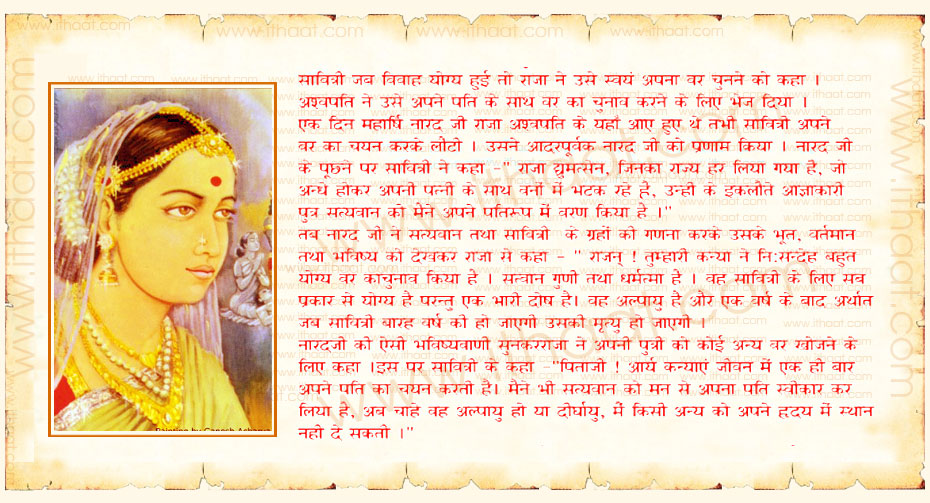 सावित्री जब विवाह योग्य हुई तो राजा ने उसे स्वयं अपना वर चुनने को कहा ।
अश्वपति ने उसे अपने पति के साथ वर का चुनाव करने के लिए भेज दिया ।
एक दिन महार्षि नारद जी राजा अश्वपति के यहाँ आए हुए थे तभी सावित्री अपने
वर का चयन करके लौटी । उसने आदरपूर्वक नारद जी को प्रणाम किया । नारद जी
के पूछने पर सावित्री ने कहा -" राजा द्युमत्सेन, जिनका राज्य हर लिया गया है, जो
अन्धे होकर अपनी पत्नी के साथ वनों में भटक रहे है, उन्ही के इकलौते आज्ञाकारी
पुत्र सत्यवान को मैने अपने पतिरूप में वरण किया है ।"
तब नारद जी ने सत्यवान तथा सावित्री के ग्रहों की गणना करके उसके भूत, वर्तमान
तथा भविष्य को देखकर राजा से कहा - " राजन् ! तुम्हारी कन्या ने नि:सन्देह बहुत
योग्य वर काचुनाव किया है । सत्वान गुणी तथा धर्मत्मा है । वह सावित्री के लिए सब
प्रकार से योग्य है परन्तु एक भारी दोष है। वह अल्पायु है और एक वर्ष के बाद अर्थात
जब सावित्री बारह वर्ष की हो जाएगी उसकी मृत्यु हो जाएगी ।
नारदजी की ऐसी भविष्यवाणी सुनकरराजा ने अपनी पुत्री को कोई अन्य वर खोजने के
लिए कहा ।इस पर सावित्री के कहा -"पिताजी ! आर्य कन्याएं जीवन में एक ही बार
अपने पति का चयन करती है। मैने भी सत्यवान को मन से अपना पति स्वीकार कर
लिया है, अब चाहे वह अल्पायु हो या दीर्घायु, मैं किसी अन्य को अपने ह्रदय में स्थान
नही दे सकती ।"
www.ithaat.com
Painting by Ganesh Acharya